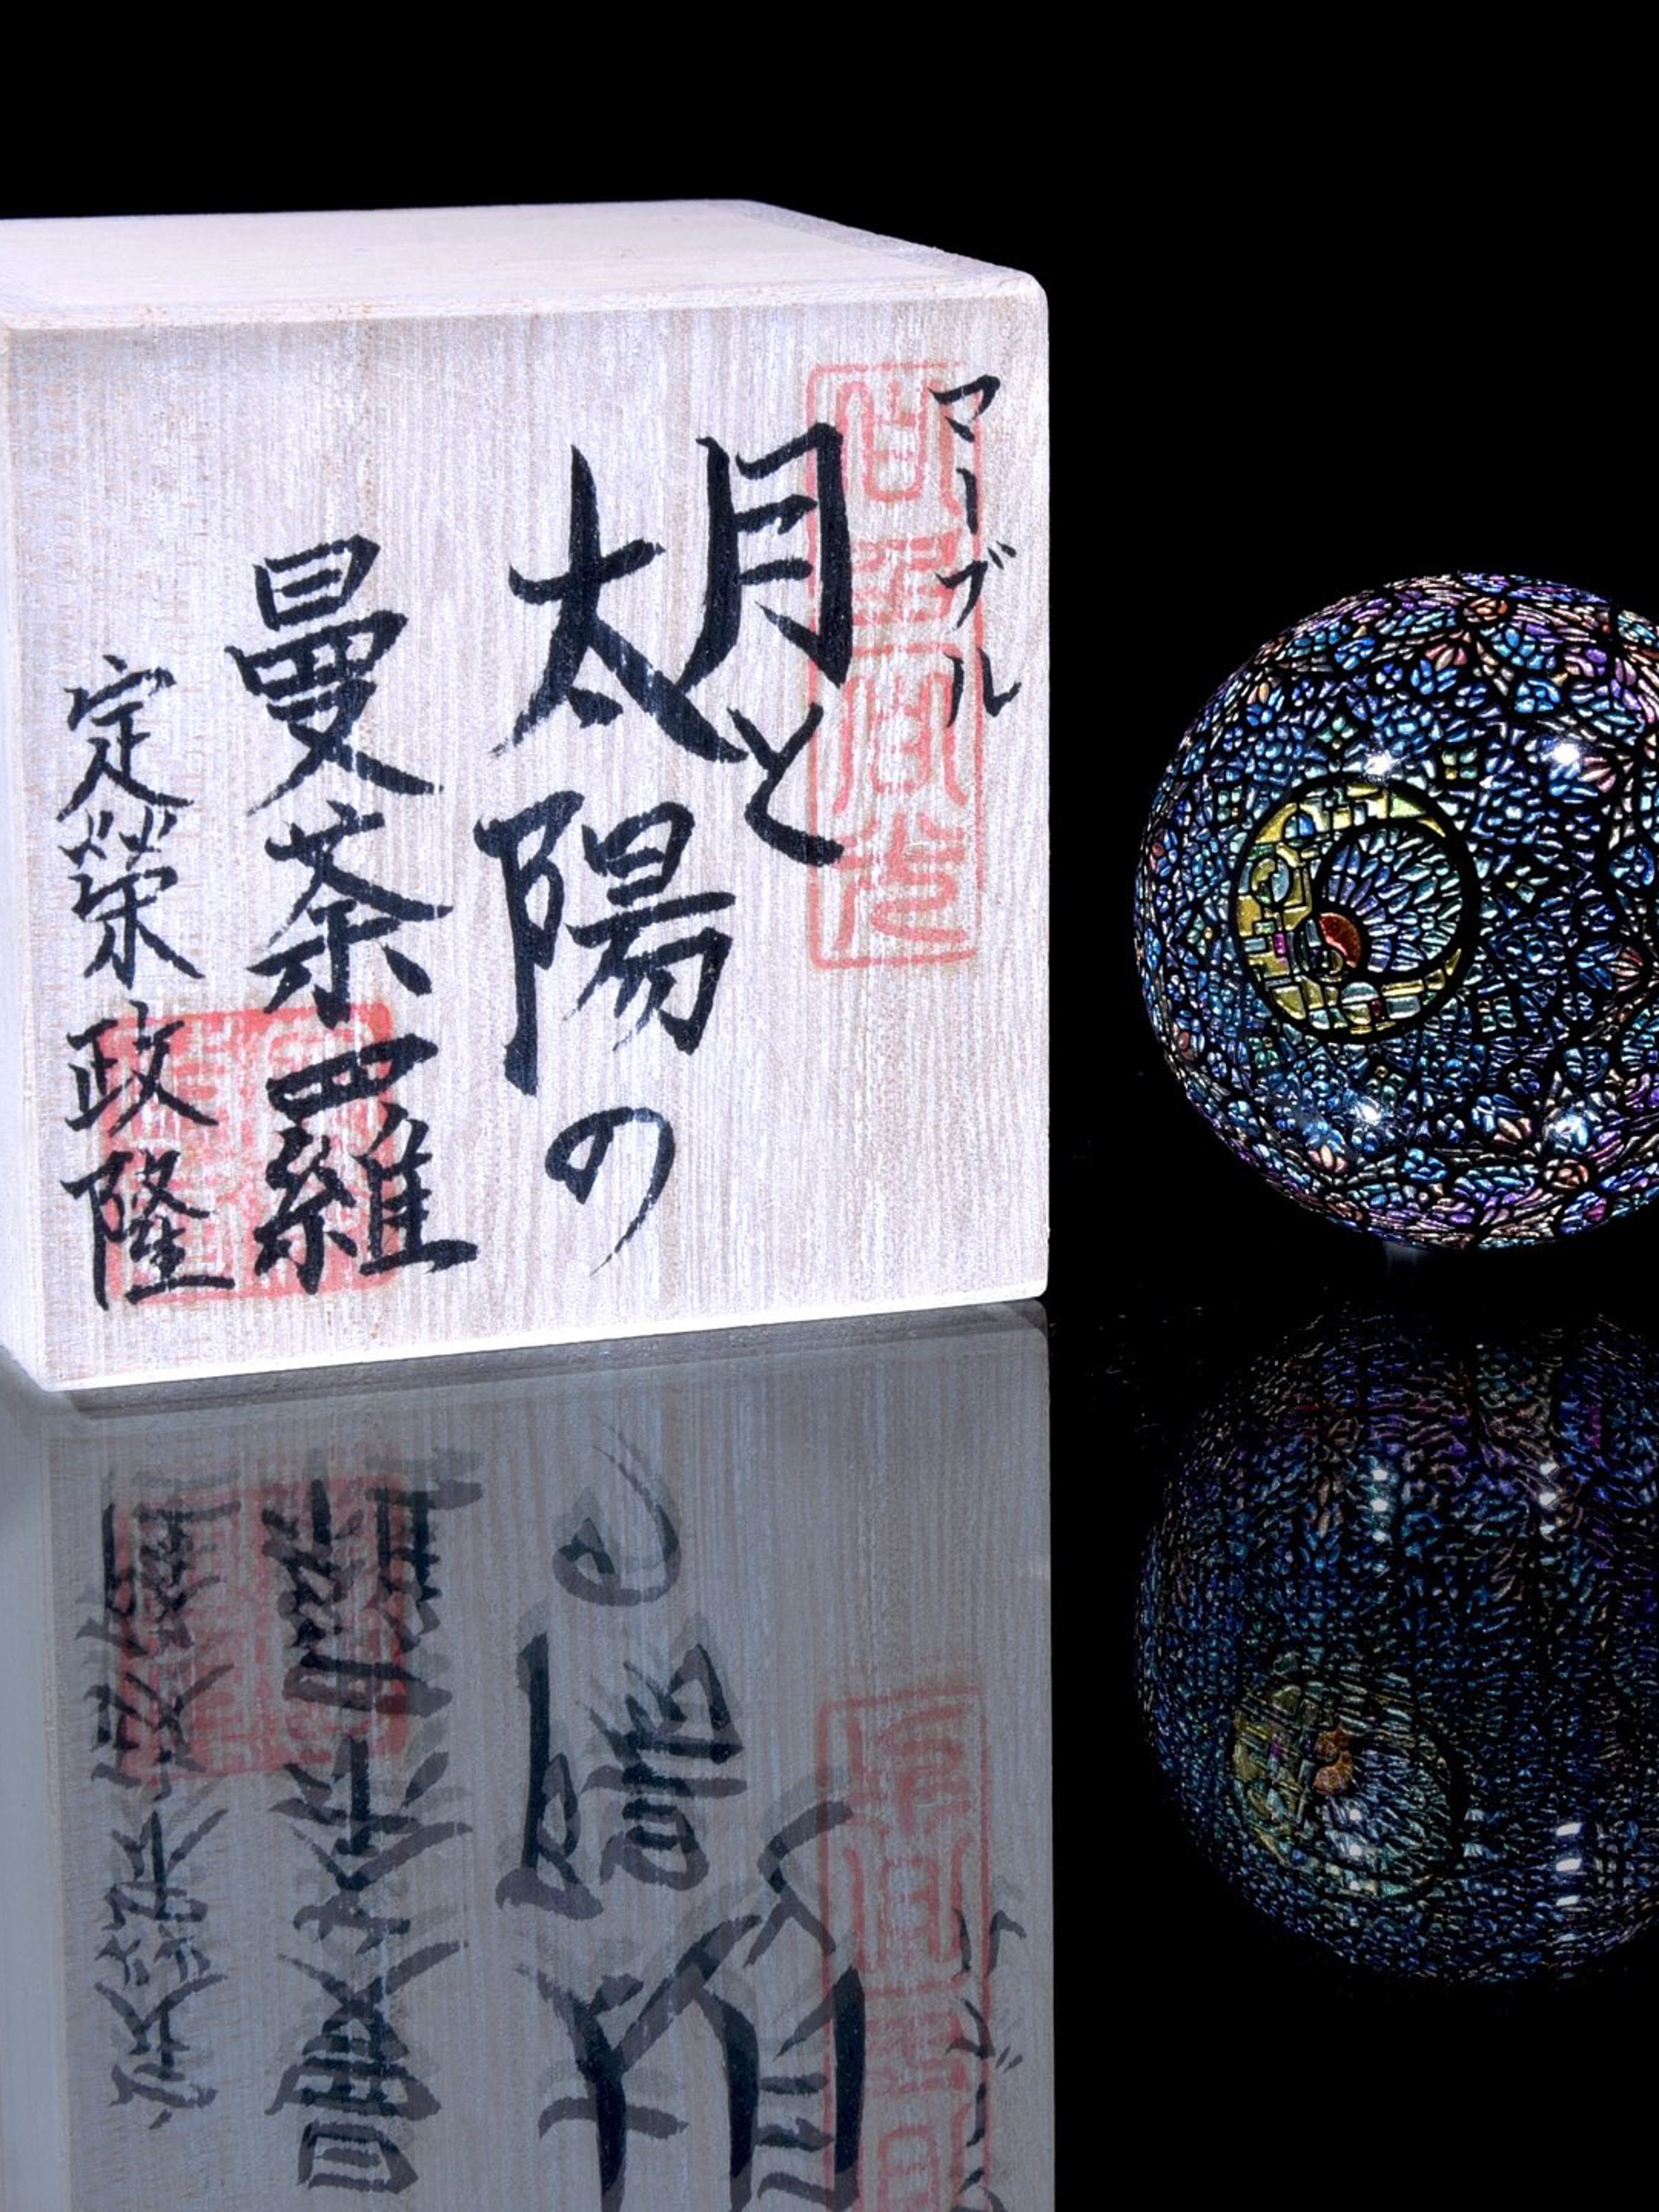 マーブル
月と
太陽の
曼荼羅
定榮政隆